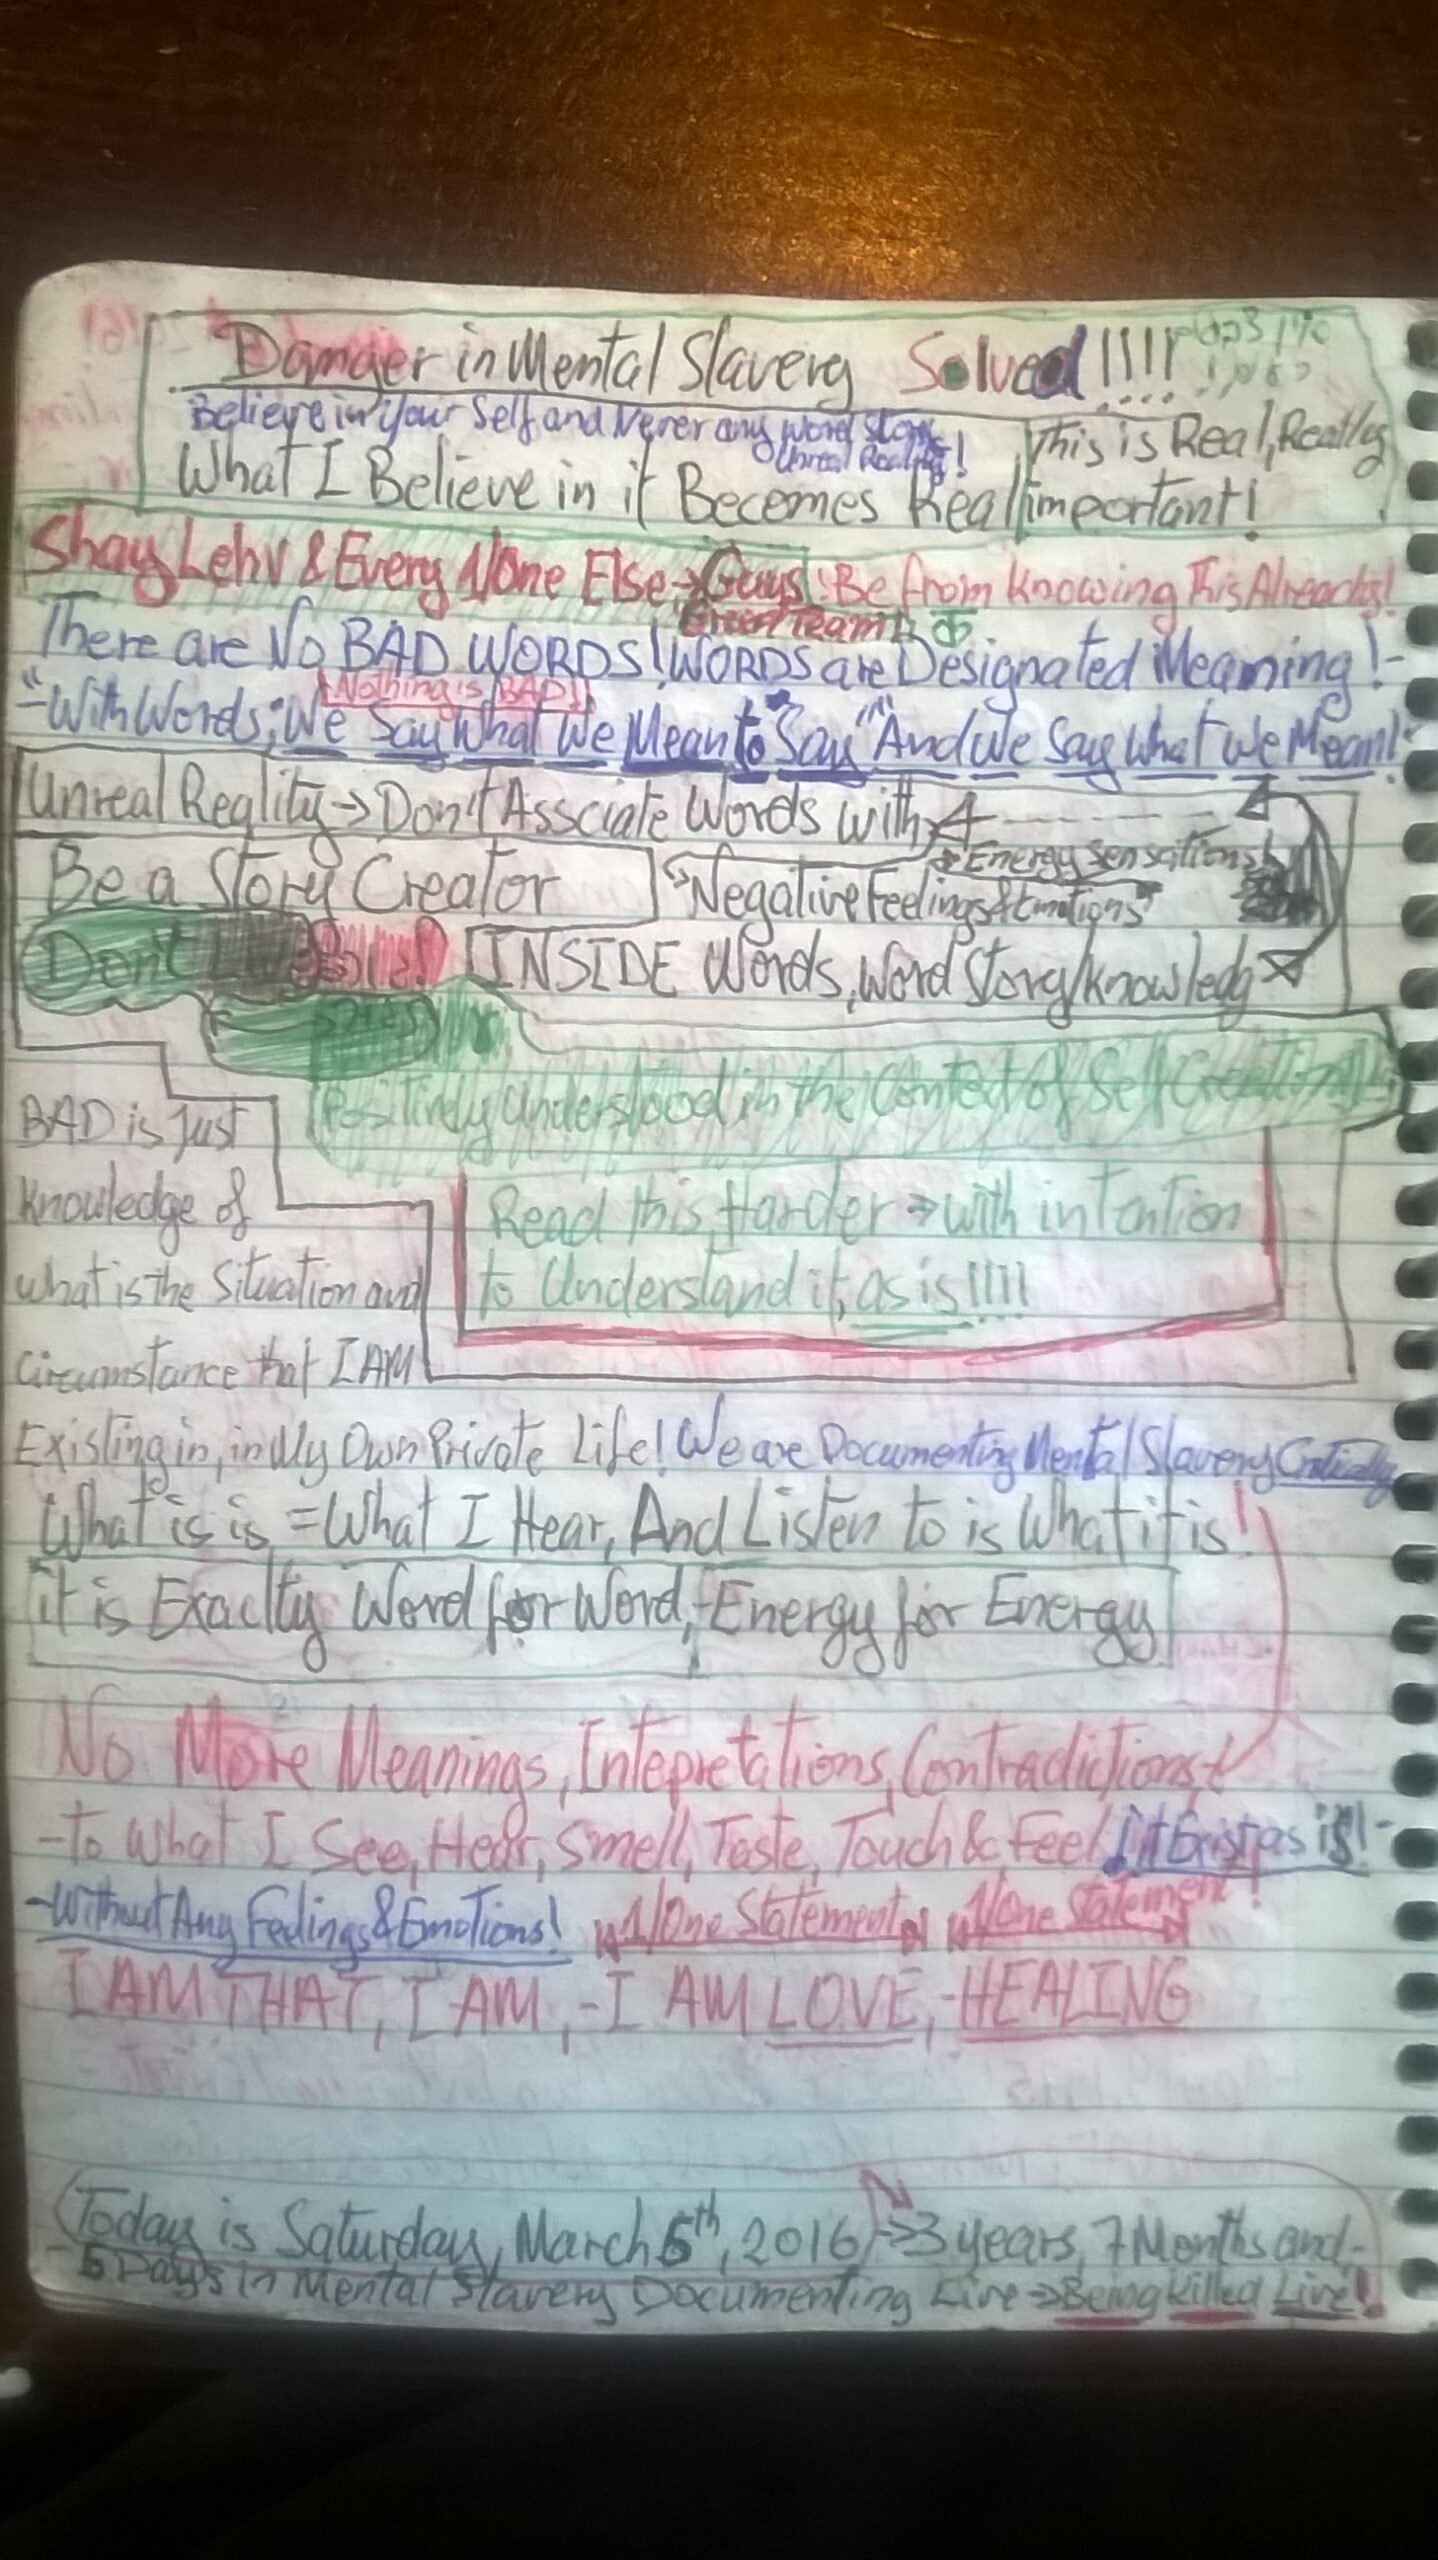 Danger in Mental Slavery Solved!!!!
Believe in Your Self and Never any Word Story
Unreal Reality!
This is Real, Really
What I Believe in it Becomes Real
important!
Shay Lehv & Every 1/One Else → Guys: Be from Knowing This Already!
Green Team
There are No BAD WORDS! WORDS are Designated Meaning!-
Nothing is BAD!
-With Words; We Say What We Mean to Say" And We Say What We Mean!
Unreal Reality → Don't Assciate Words with
Energy Sensations
Be a Story Creator
"Negative Feelings & Emotions"
Don't
INSIDE Words, Word Story/Knowledg
Positively Understood in the Context of Self Creation
BAD is Just
Knowledge of
Read this Harder → with intention
what is the Situation and
to Understand it, as is!!!!
Circumstance that I AM
Existing in, in My Own Private Life! We are Documenting Mental Slavery Critically
What is is = What I Hear, And Listen to is What it is!
it is Exaclty Word for Word, -Energy for Energy
No More Meanings, Intepretations, Contradictions,
-To What I See, Hear, Smell, Taste, Touch & Feel. It Exist as is!-
-Without Any Feelings & Emotions! 1/One Statement 1/One Statement!
I AM THAT, I AM, -I AM LOVE, -HEALING
(Today is Saturday, March 5th, 2016) → 3 years, 7 Months and-
-5 Days in Mental Slavery Documenting Live → Being Killed Live!